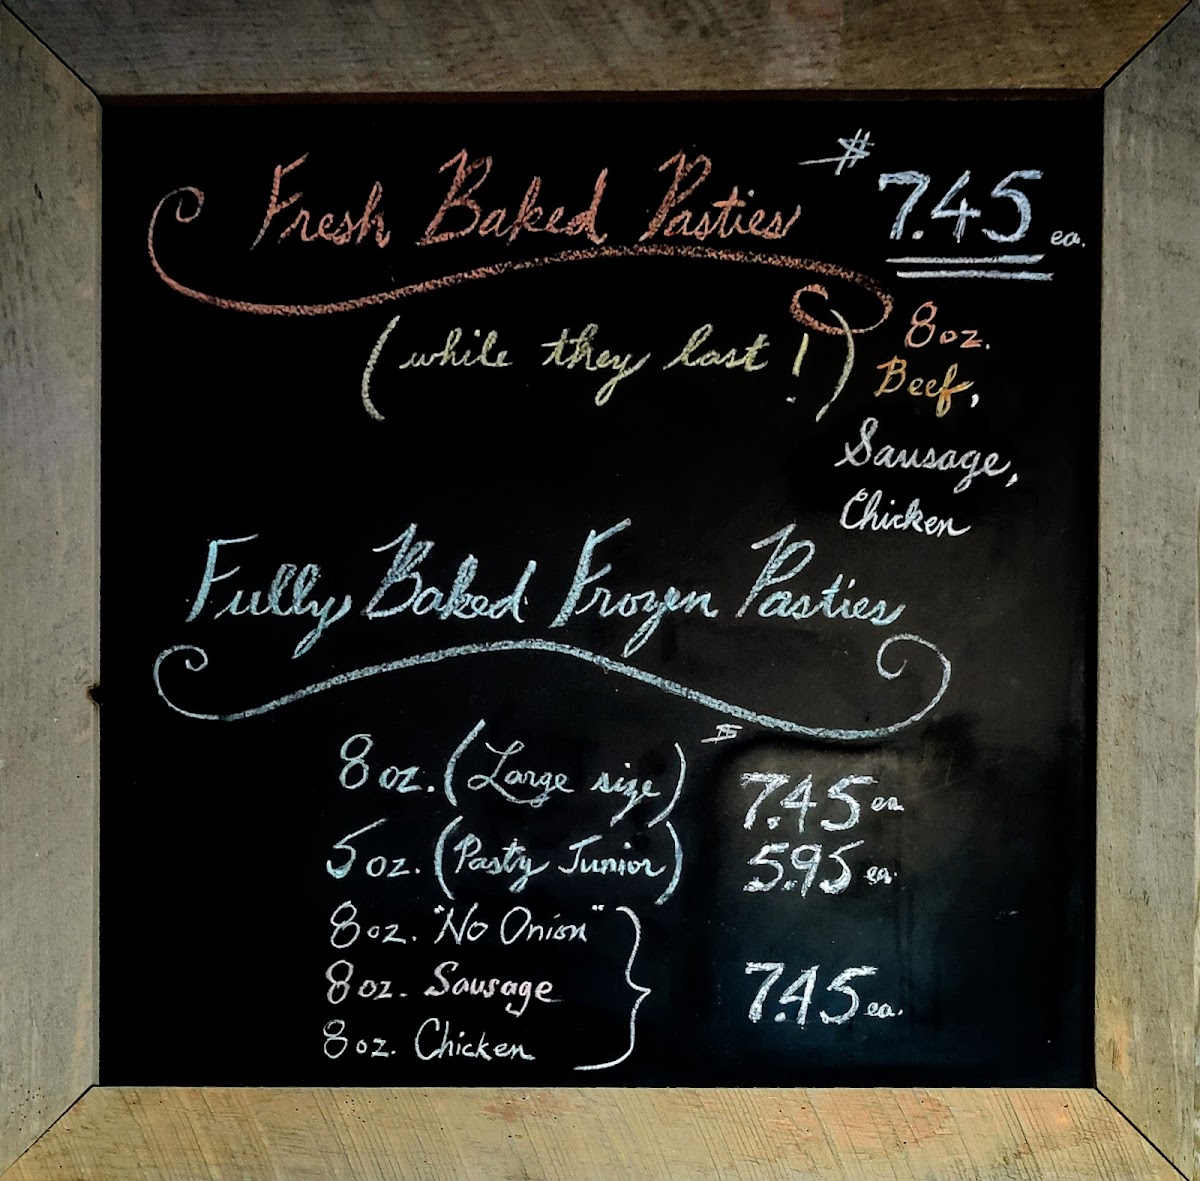 Fresh Baked Pasties $7.45 ea.
(while they last!)
8oz.
Beef,
Sausage,
Chicken
Fully Baked Frozen Pasties
8 oz. (Large size) $7.45 ea
5 oz. (Pasty Junior) 5.95 ea.
8 oz. "No Onion"
8 oz. Sausage 7.45 ea.
8 oz. Chicken